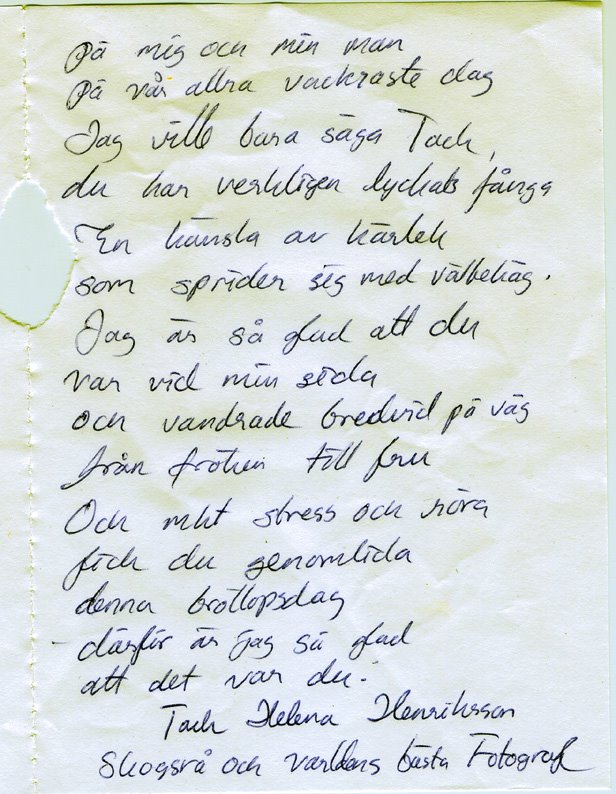 på mig och min man
på vår allra vackraste dag
Jag ville bara säga Tack,
du har verkligen lyckats fånga
En känsla av kärlek
som sprider sig med välbehag.
Jag är så glad att du
var vid min sida
och vandrade bredvid på väg
från fröken till fru
Och mkt stress och röra
fick du genomlida
denna bröllopsdag
- därför är jag så glad
att det var du.
Tack Helena Henriksson
Skogsrå och världens bästa Fotograf